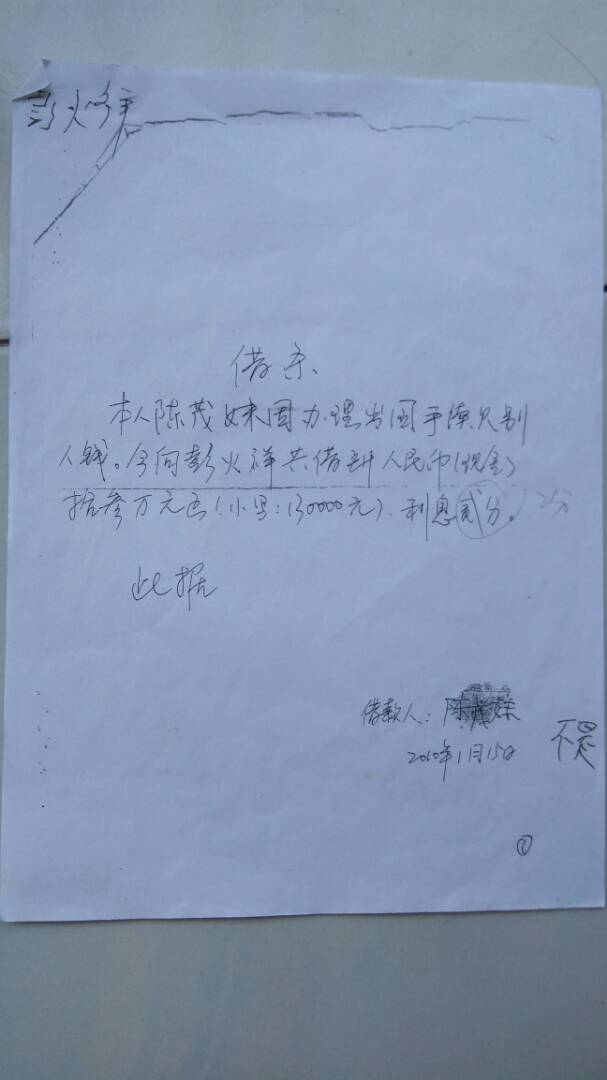 彭火祥
借条
本人陈茂妹因办理出国手续欠别
人钱。今向彭火祥共借到人民币(现金)
拾叁万元正(小写:130000元).利息贰分。2分
此据
借款人:陈茂妹
2010年1月15日
①